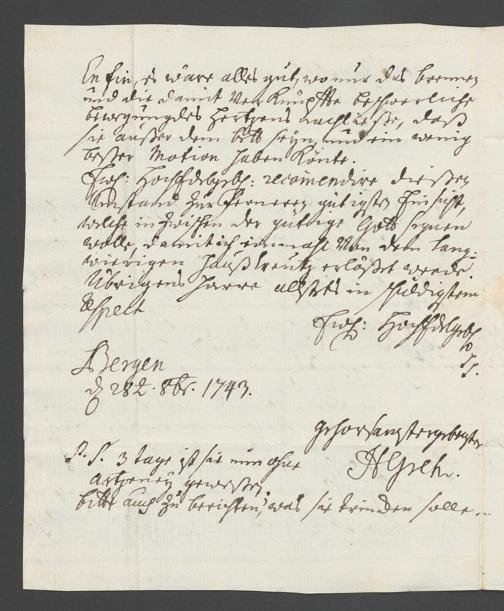 En fin, es wäre alles gut, wo nur das brennen
und die damit verknüpffte beschwerliche
bewegung des Hertzens nachliesse, daß
sie außer dem bett seyn und ein wenig
besser Motion haben könte.
Ewh: Hochfdlgebh: recomendire dießen
Umstand zur ferneren gütigster Einsicht,
welche inzwischen der gütige Gott seegnen
wolle, damit ich einmahl von dem lang-
wierigen Haußkreutz erlößet werde.
Übrigens harre allstets in schuldigstem
Respect
Ewh: Hochfdlgebh
Bergen
d 28t. 8br. 1743.
gehorsamster
P. S. 3 tage ist sie nun ohne
artzeney gewesen,
bitte auch zu berichten, was sie trincken solle.